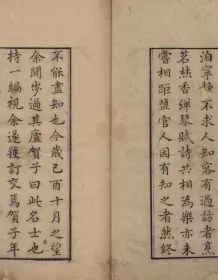 泊寧靜不求人知客有過訪者烹
茗焚香彈琴賦詩共相為樂亦未
嘗相距鹽官人固有知之者然終
不能盡知也今歲己酉十月之望
余閒步過其廬賀子曰此名士也
持一編視余遂獲訂交焉賀子年